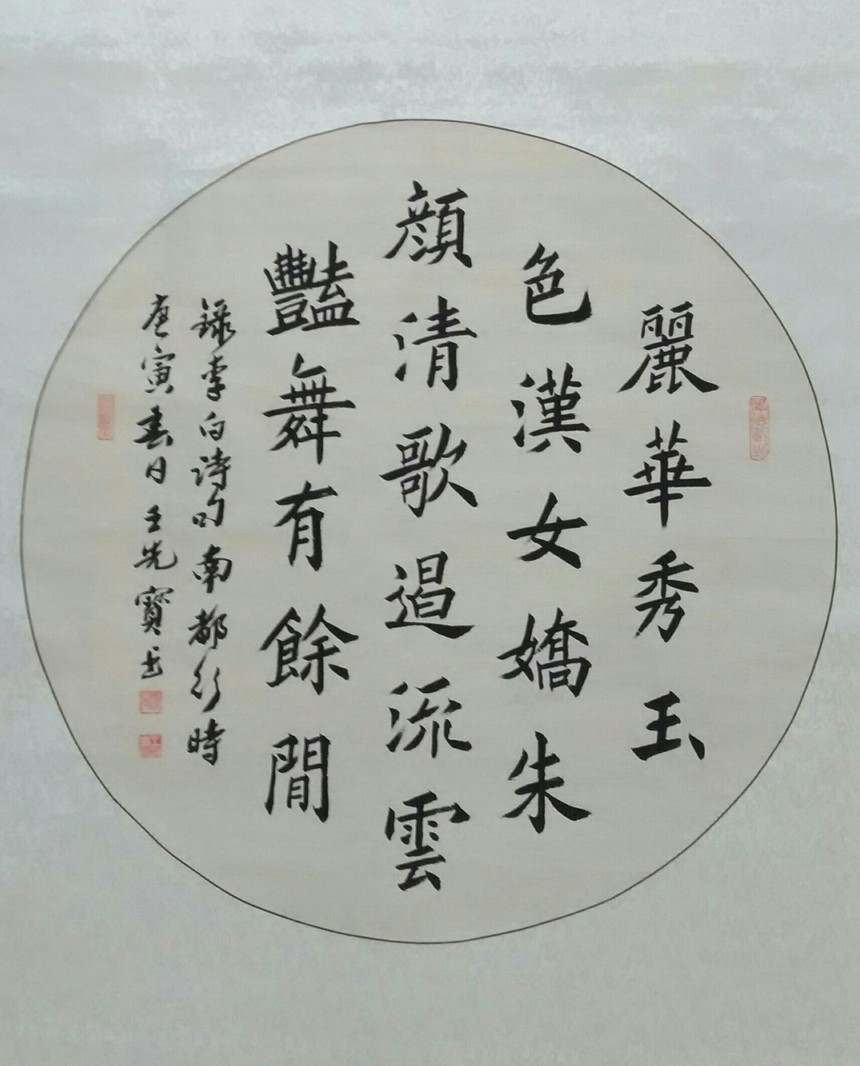 麗華秀玉
色漢女嬌朱
顔清歌遏流雲
豔舞有餘閒
録李白诗句南都行時
庚寅春日王先寳书